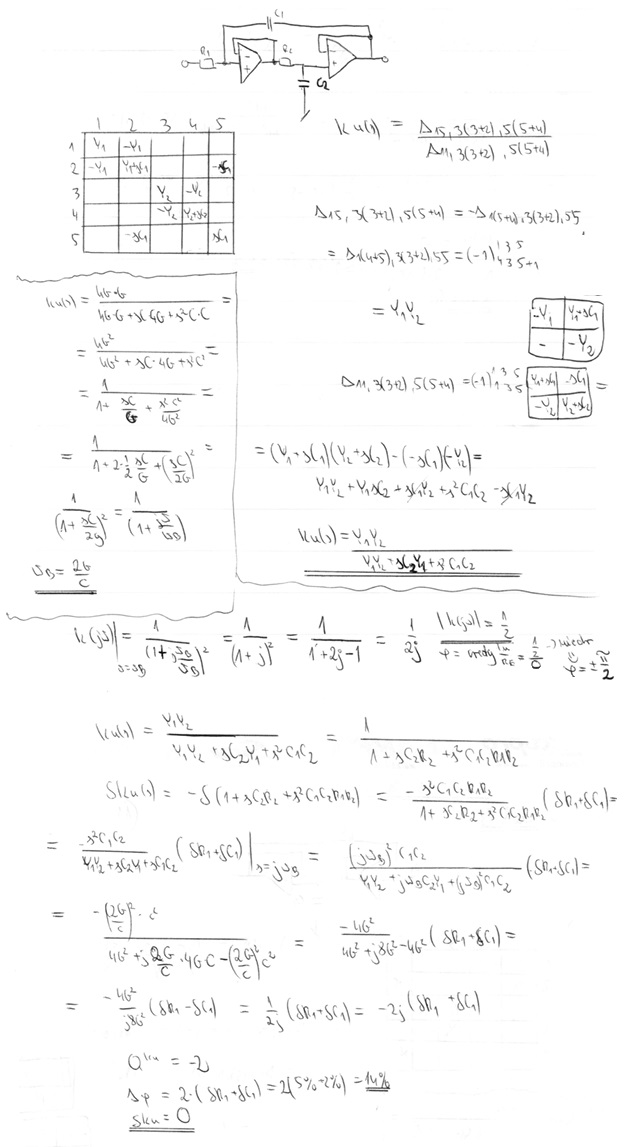 C1
R1
R2
C2
Ku(s) = Δ15, 3(3+2), 5(5+4) / Δ11, 3(3+2), 5(5+4)
1 2 3 4 5
1 Y1 -Y1
2 -Y1 Y1+sC1 -sC1
3 Y2 -Y2
4 -Y2 Y2+sC2
5 -sC1 sC1
Δ15, 3(3+2), 5(5+4) = -Δ1(5+4), 3(3+2), 55,
= Δ1(4+5), 3(3+2), 55 = (-1) 1 3 5 4 3 5+1
= Y1Y2
-Y1 Y1+sC1
- -Y2
Δ11, 3(3+2), 5(5+4) = (-1) 1 3 5 1 3 5 Y1+sC1 -sC1 =
-Y2 Y2+sC2
= (Y1+sC1)(Y2+sC2)-(-sC1)(-Y2) =
Y1Y2 + Y1sC2 + sC1Y2 + s²C1C2 - sC1Y2
Ku(s) = Y1Y2 / Y1Y2 + sC2Y1 + s²C1C2
Ku(s) = 4G·G / 4G·G + sC·4G + s²C·C =
= 4G² / 4G² + sC·4G + s²C² =
= 1 / 1 + sC/G + s²C²/4G² =
= 1 / 1 + 2·1/2 sC/G + (sC/2G)² =
1 / (1 + sC/2g)² = 1 / (1 + s/ωB)
ωB = 2G/C
K(jω)|ω=ωB = 1 / (1+j ωB/ωB)² = 1 / (1+j)² = 1 / 1+2j-1 = 1/2j |K(jω)| = 1/2
φ = arctg Im/RE = 1/2 / 0 → φ = ± π/2
Ku(s) = Y1Y2 / Y1Y2 + sC2Y1 + s²C1C2 = 1 / 1 + sC2R2 + s²C1C2R1R2
δKu(s) = -δ(1 + sC2R2 + s²C1C2R1R2) = - s²C1C2R1R2 / 1 + sC2R2 + s²C1C2R1R2 (δR1+δC1) =
= -s²C1C2 / Y1Y2 + sC2Y1 + s²C1C2 (δR1+δC1)|s=jωB = (jωB)² C1C2 / Y1Y2 + jωBC2Y1 + (jωB)²C1C2 (δR1+δC1) =
= -(2G/C)² · C² / 4G² + j 2G/C · 4GC - (2G/C)² C² = -4G² / 4G² + j8G² - 4G² (δR1+δC1) =
= -4G² / j8G² (δR1 - δC1) = 1/2j (δR1+δC1) = -2j (δR1 + δC1)
QKu = -2
Δφ = 2·(δR1+δC1) = 2(5%+2%) = 14%
δKu = 0